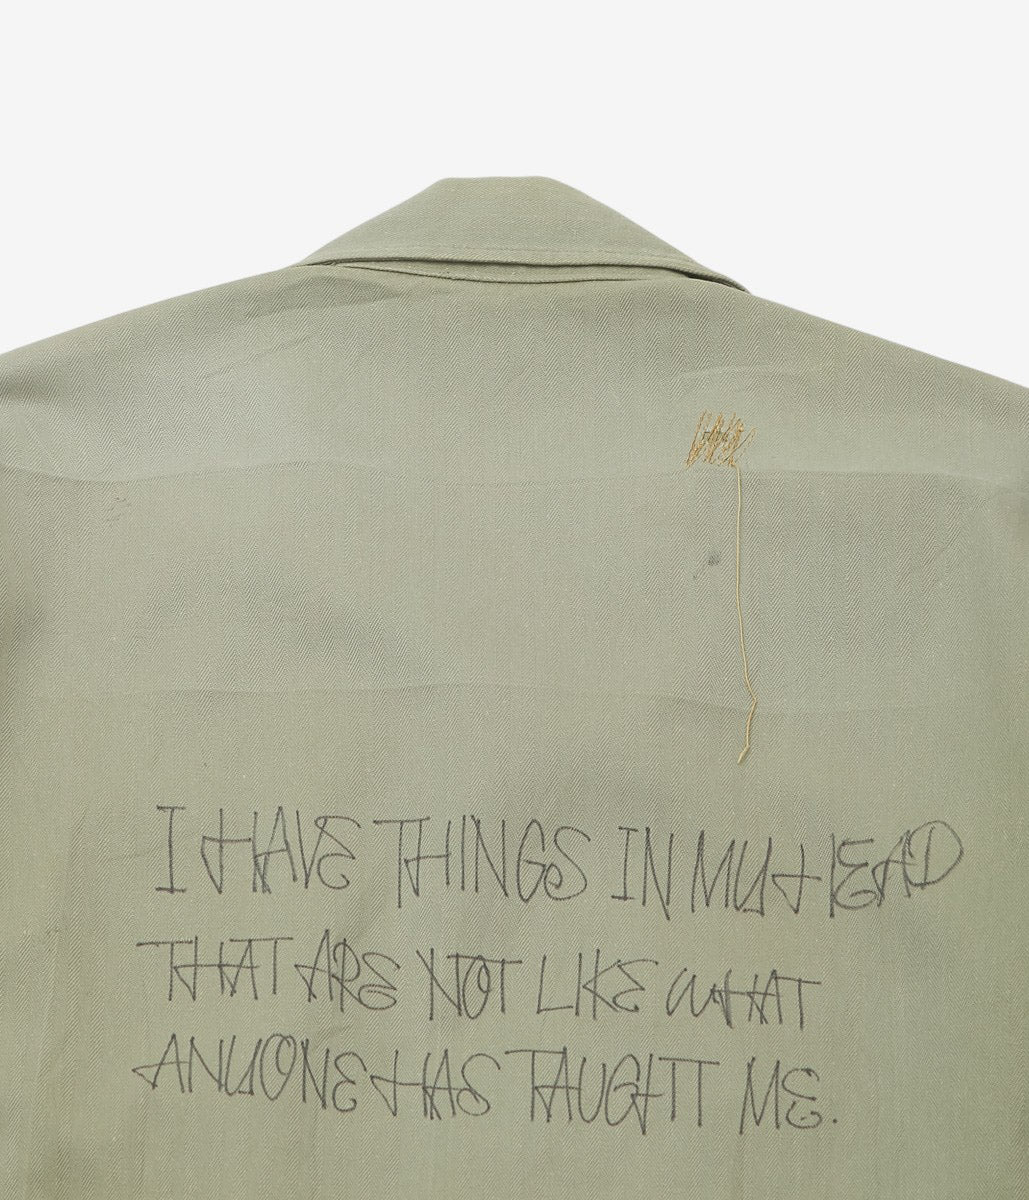 I HAVE THINGS IN MY HEAD
THAT ARE NOT LIKE WHAT
ANYONE HAS TAUGHT ME.